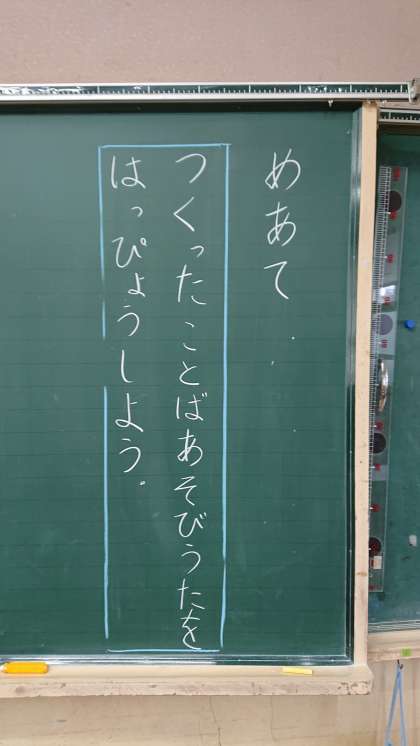 めあて
つくったことばあそびうたを
はっぴょうしよう。